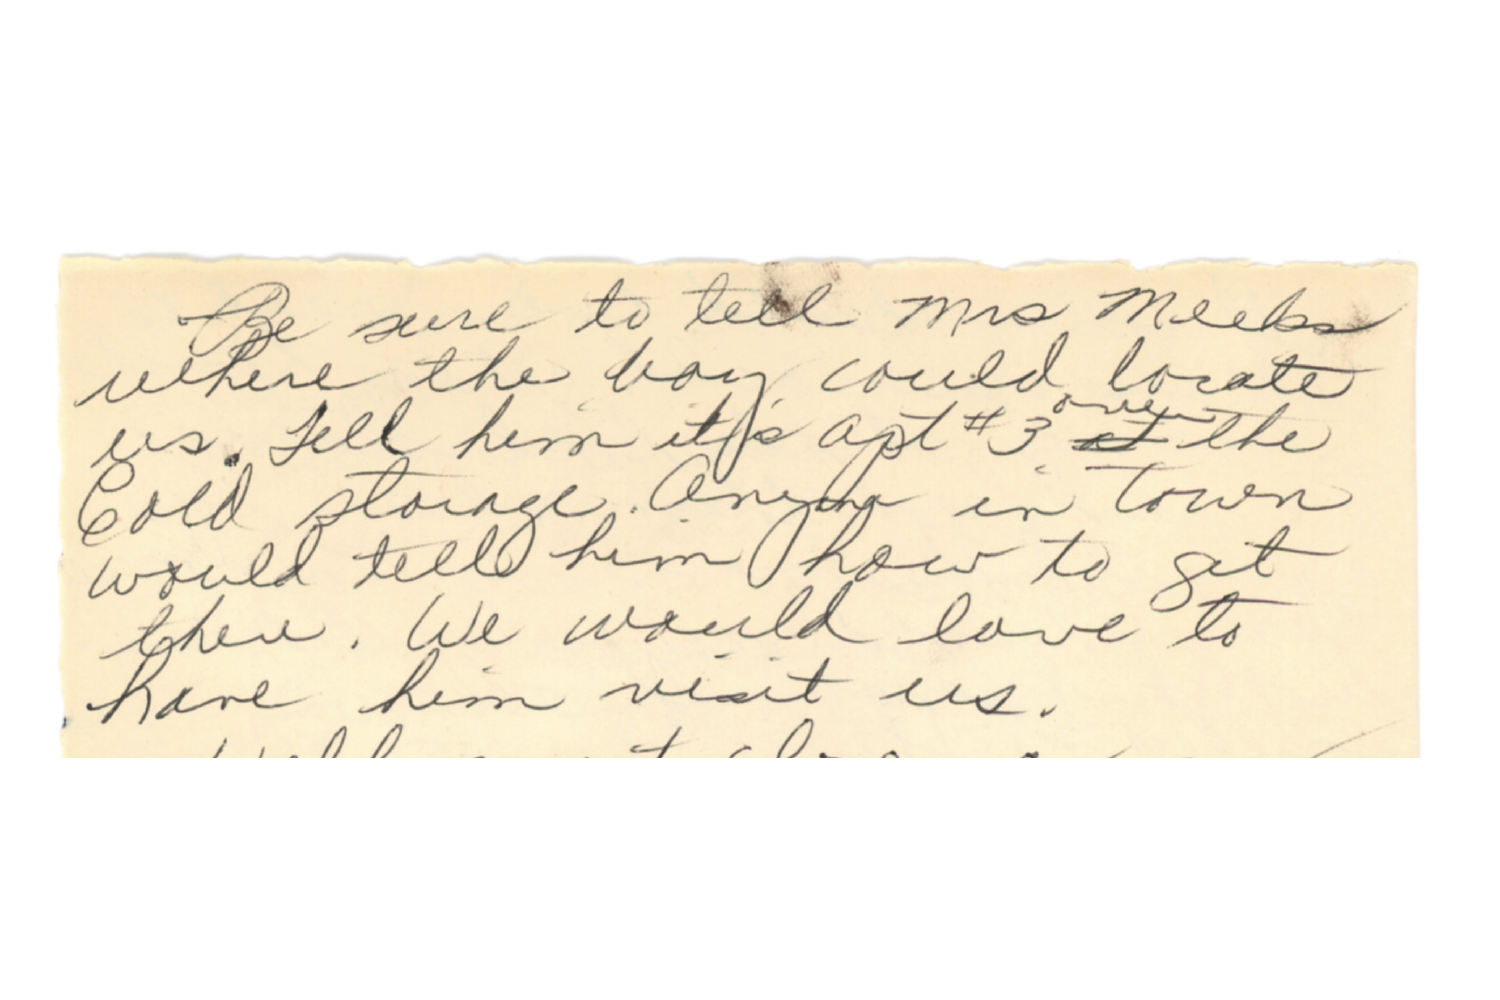 Be sure to tell Mrs Meeks
where the boy could locate
us. Tell him it's apt #3 over the
Cold storage. Anyone in town
would tell him how to get
there. We would love to
have him visit us.